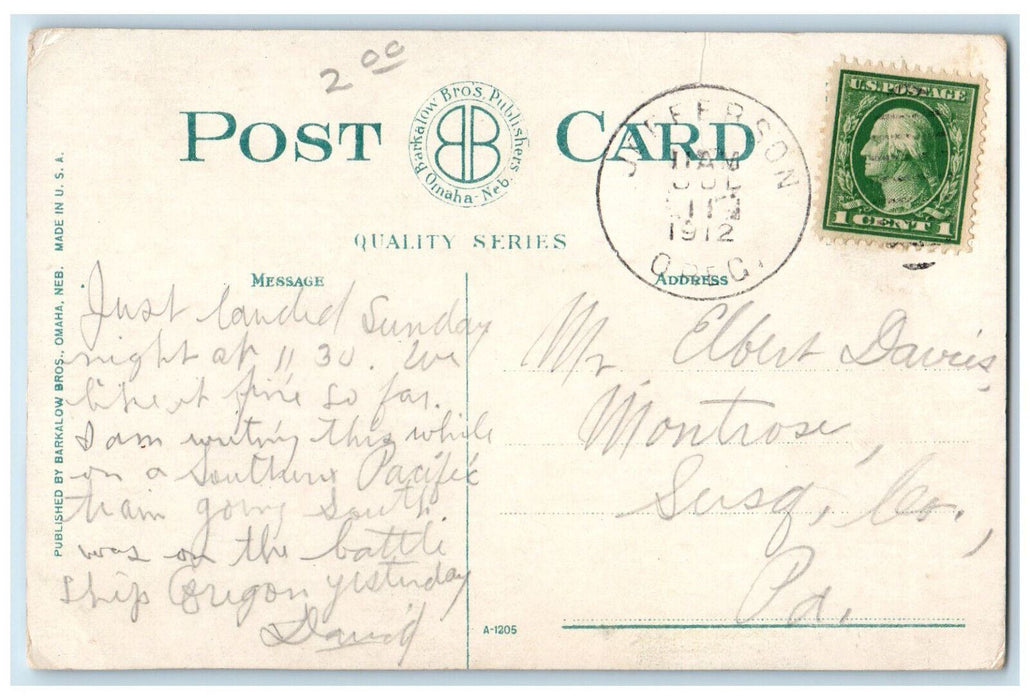 2 00
POST CARD
Barkalow Bro's. Publishers
Omaha-Neb.
BB
QUALITY SERIES
JEFFERSON
11 AM
JUL
11
1912
OREG.
U.S. POSTAGE
1 CENT 1
PUBLISHED BY BARKALOW BROS., OMAHA, NEB. MADE IN U. S. A.
MESSAGE
Just landed Sunday
night at 11 30. We
like it fine so far.
I am writing this while
on a Southern Pacific
train going South.
was on the battle
ship Oregon yesterday
David
ADDRESS
Mr Elbert Davies,
Montrose,
Susq, Co.,
Pa.
A-1205